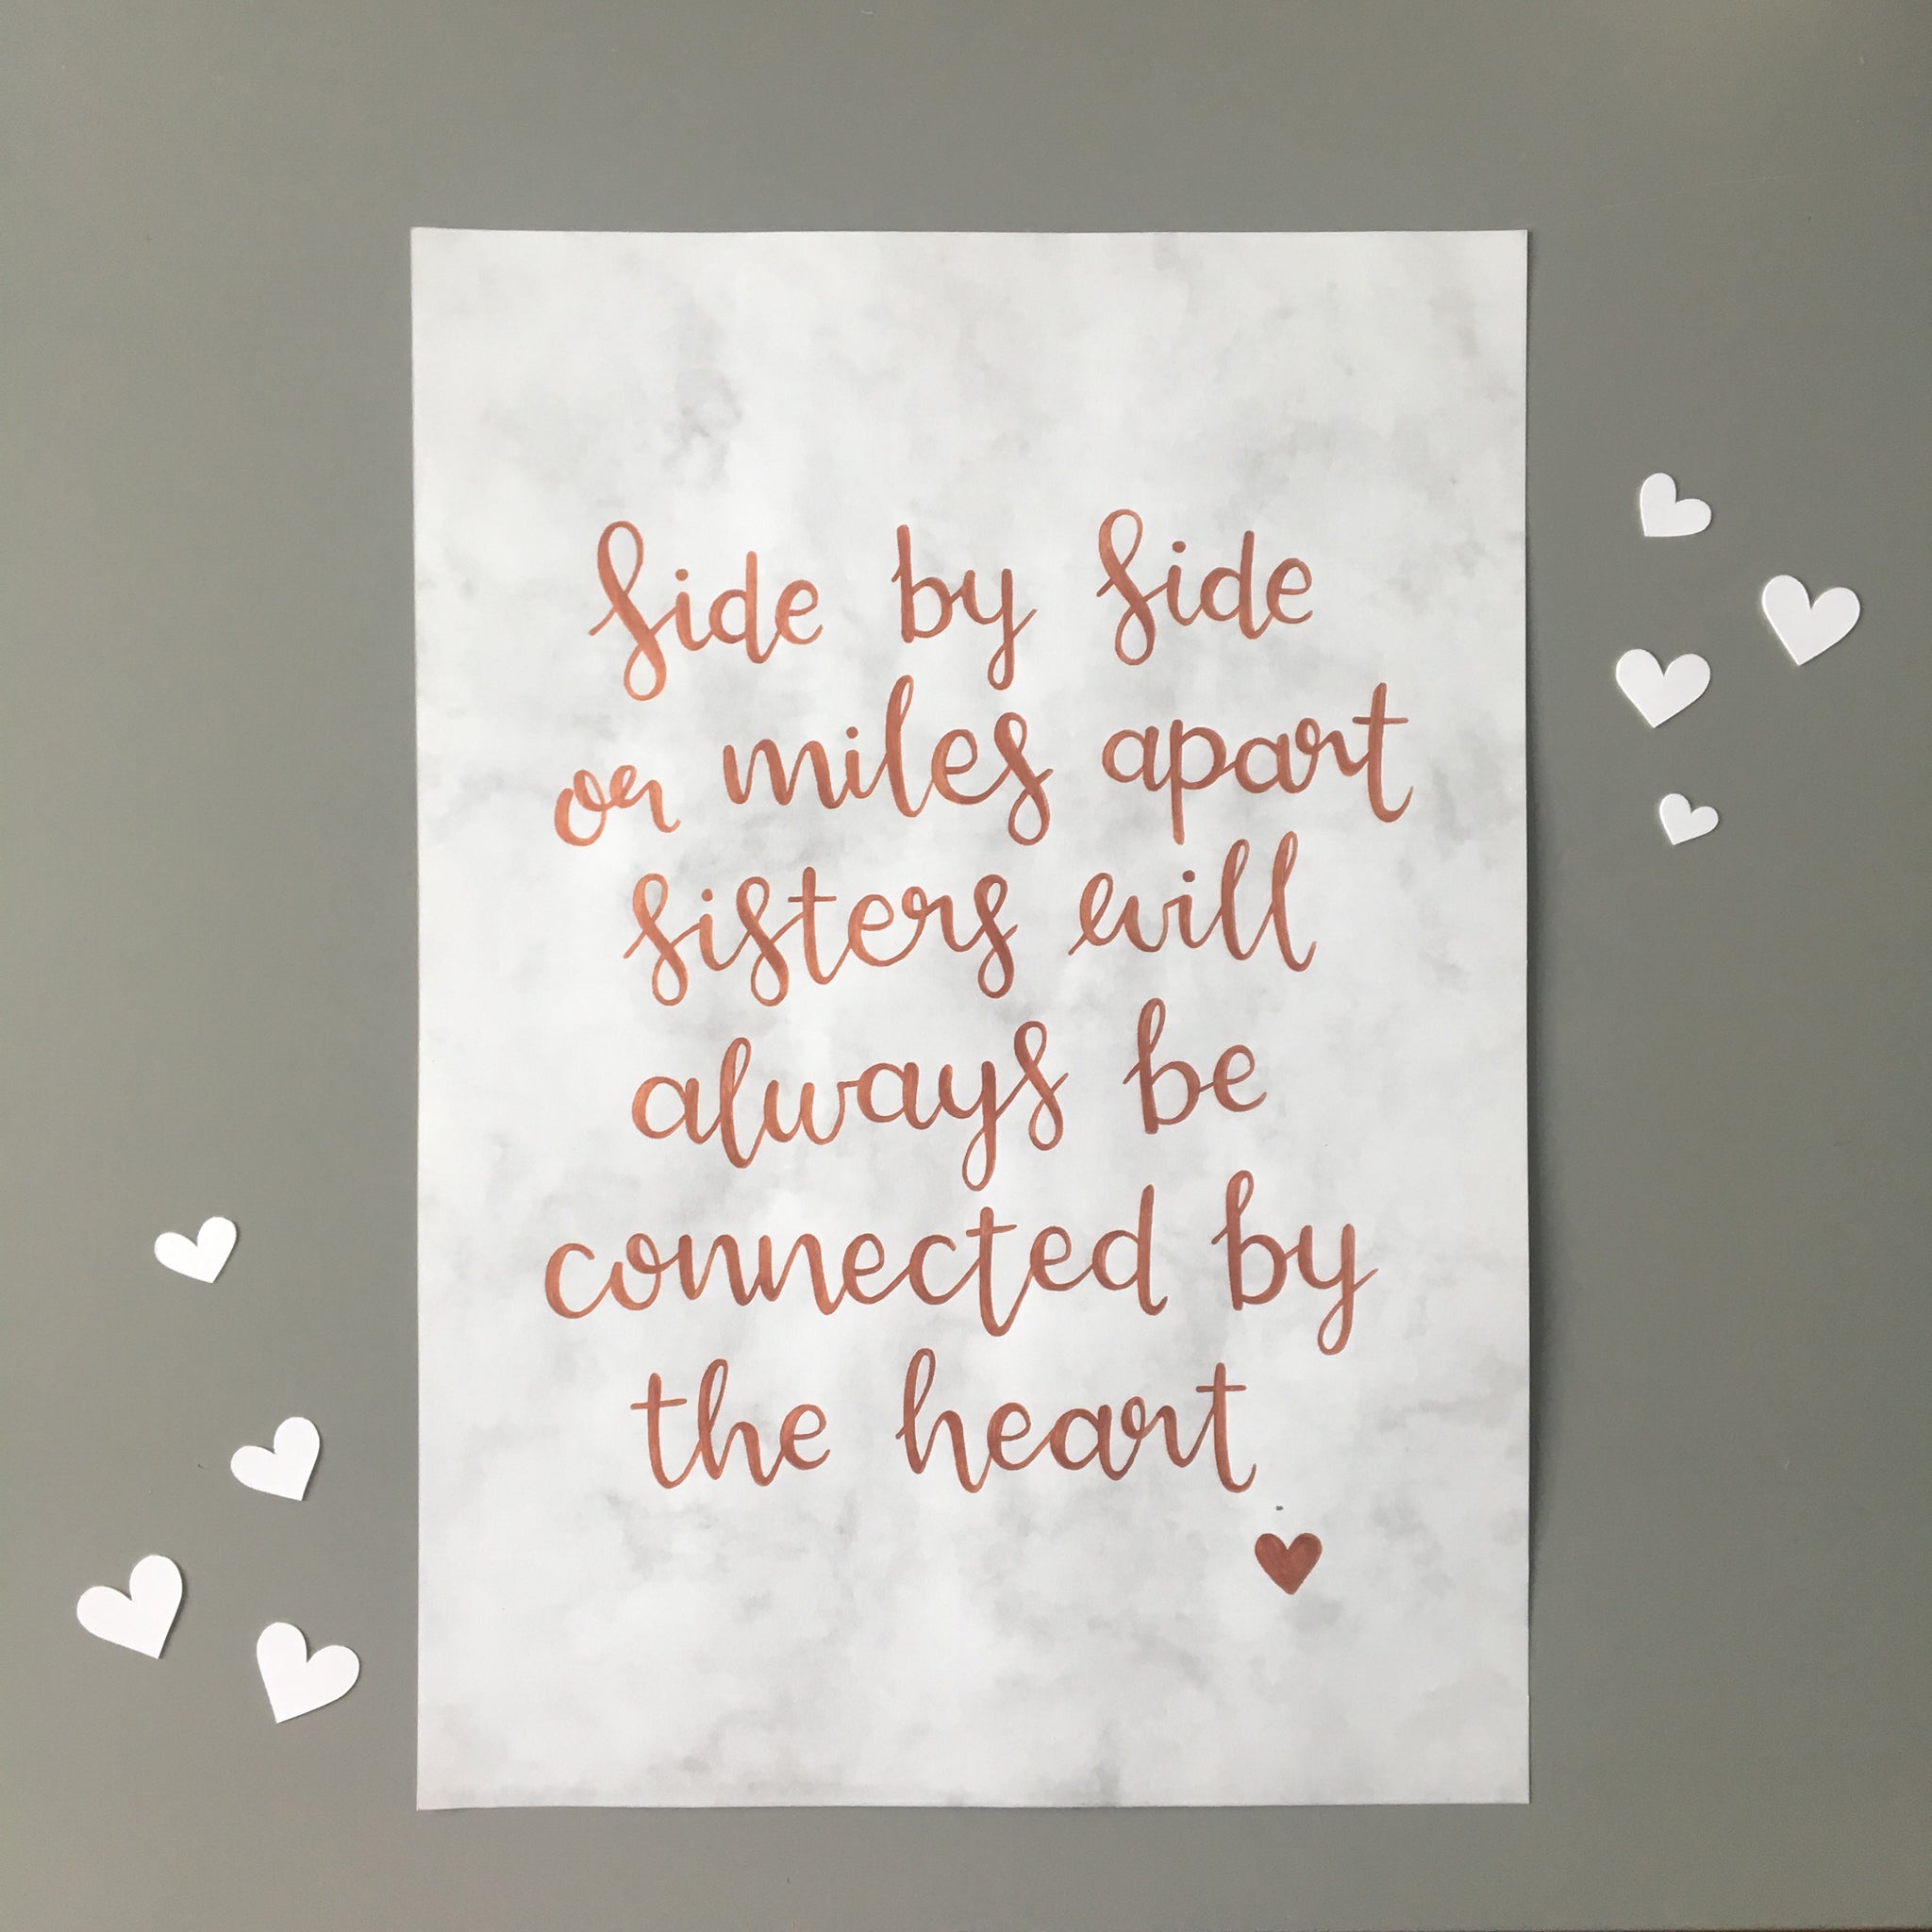 side by side
or miles apart
sisters will
always be
connected by
the heart